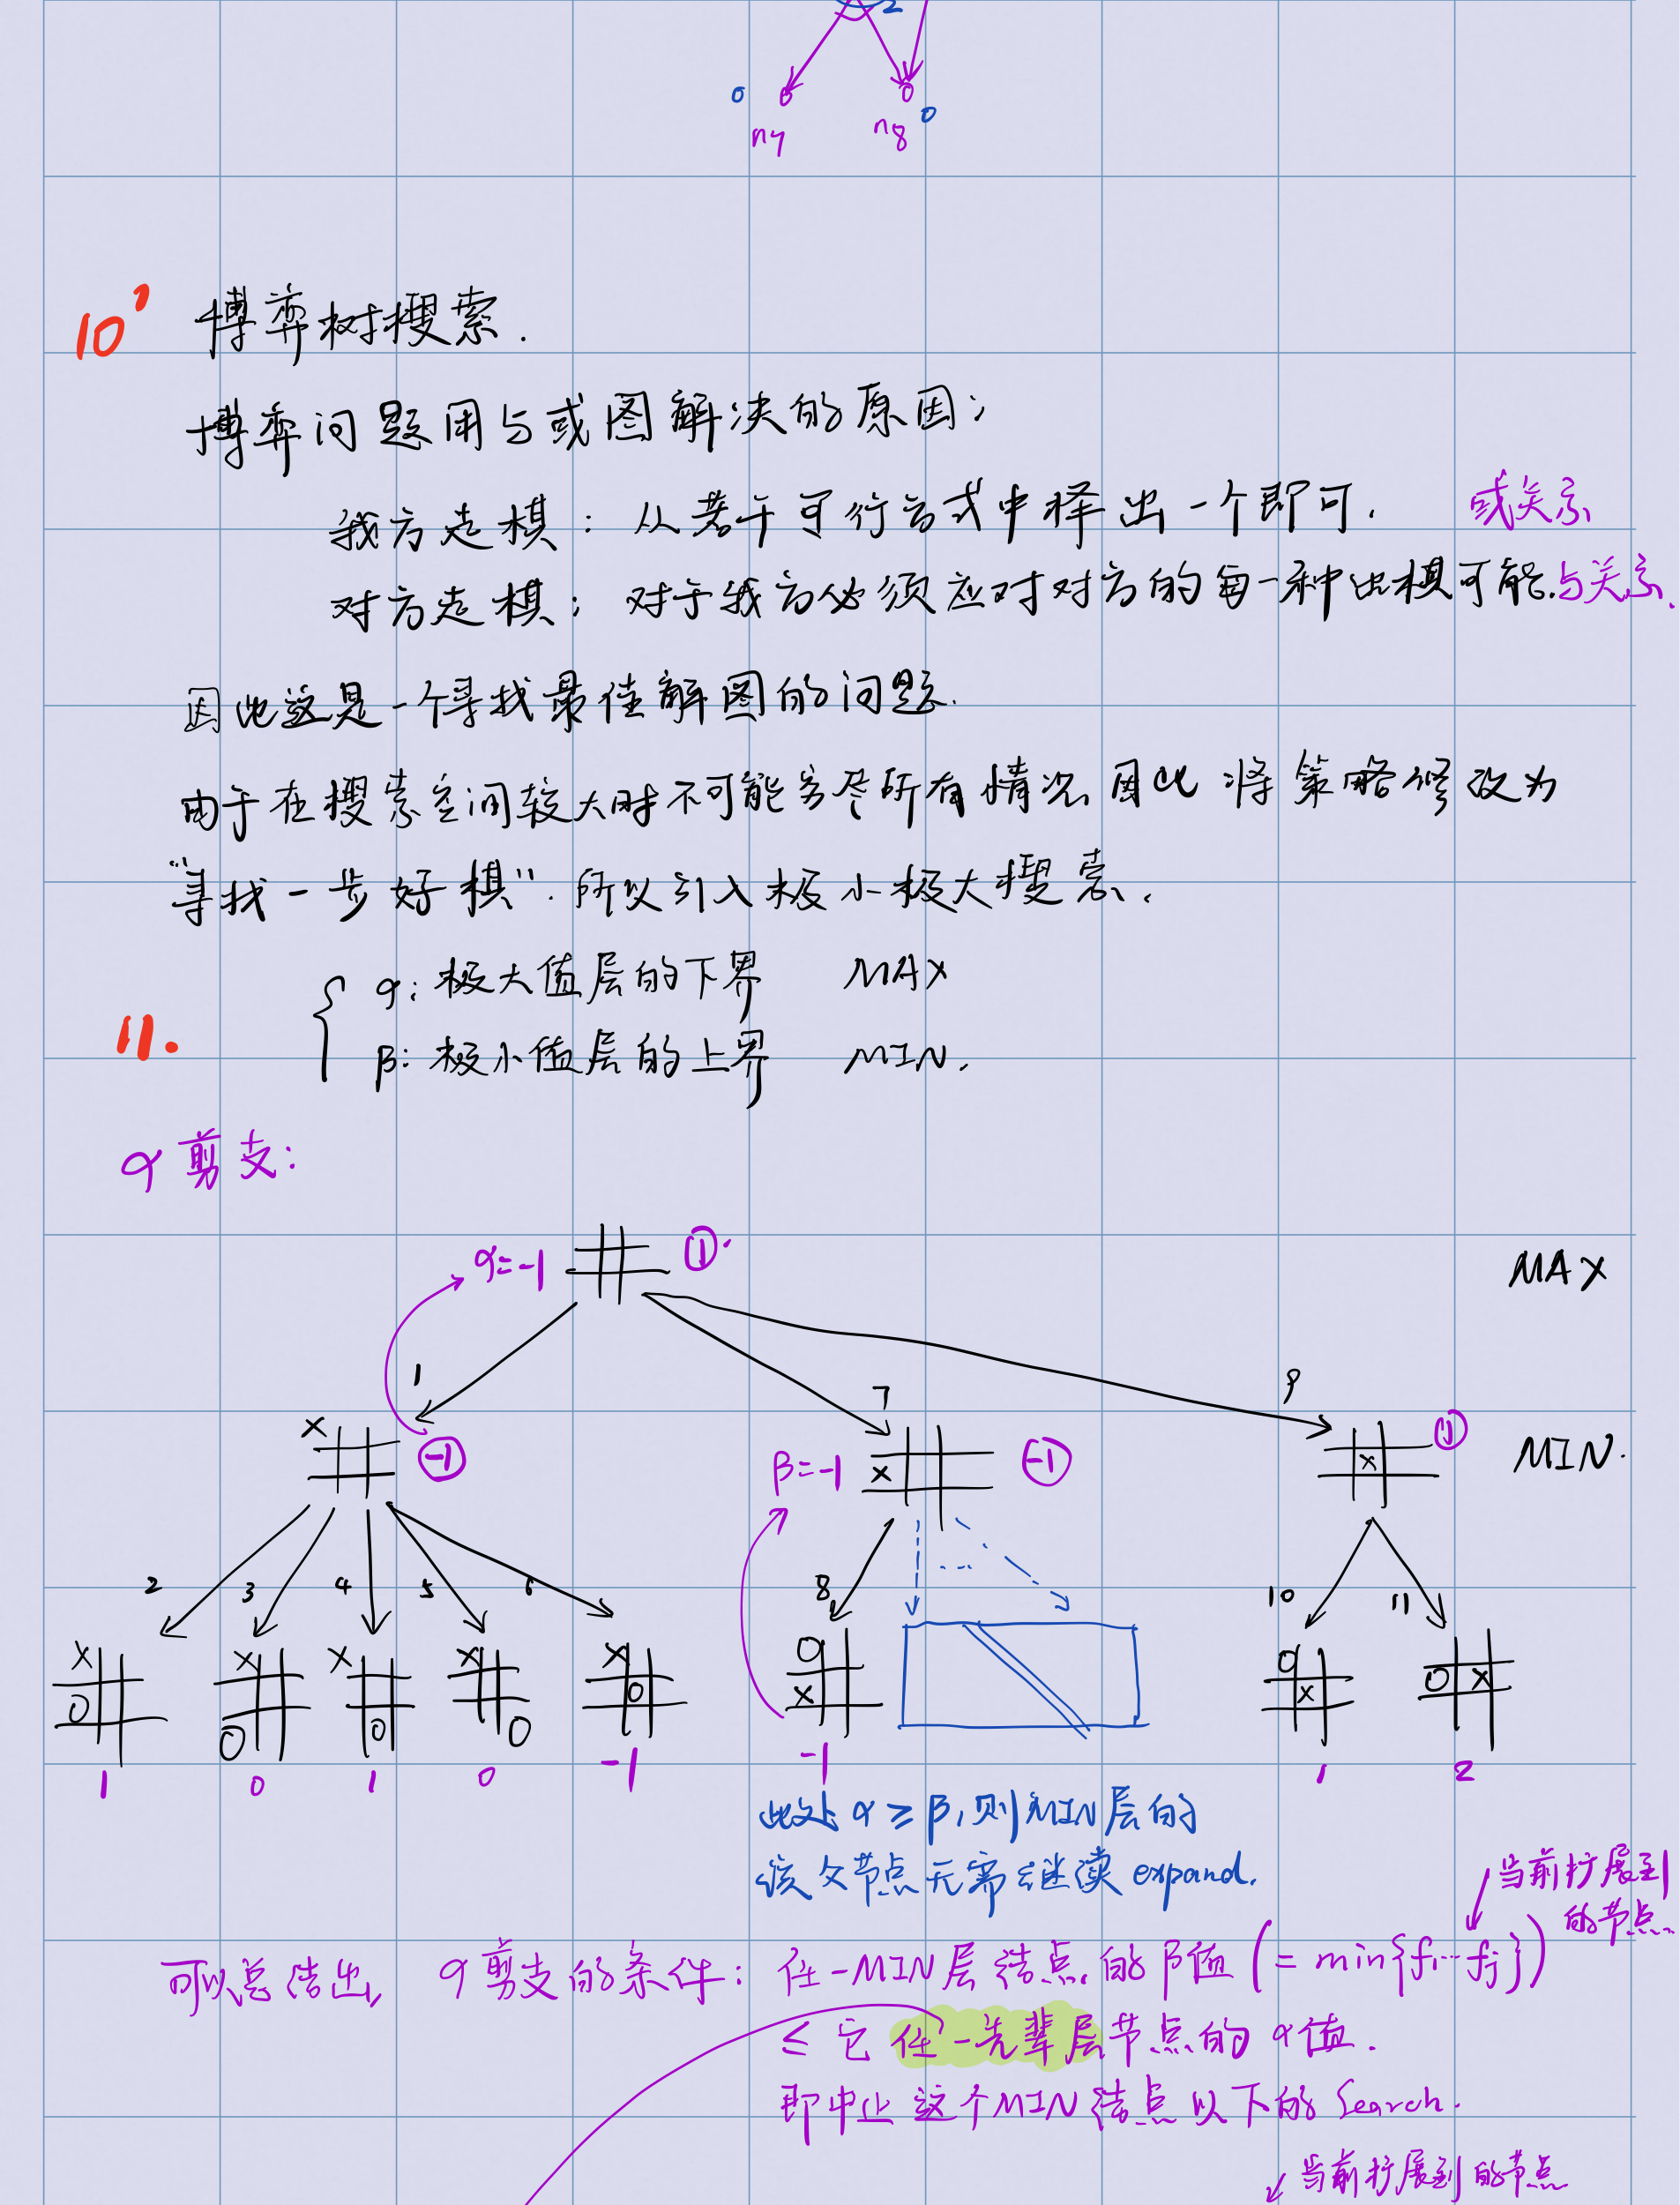 2
0 0
n7 n8
10' 博弈树搜索.
博弈问题用与或图解决的原因:
我方走棋: 从若干可行方式中择出一个即可. 或关系
对方走棋: 对于我方必须应对对方的每一种出棋可能. 与关系.
因此这是一个寻找最佳解图的问题.
由于在搜索空间较大时不可能穷尽所有情况, 因此将策略修改为
"寻找一步好棋". 所以引入极小极大搜索.
α: 极大值层的下界 MAX
11.
β: 极小值层的上界 MIN.
α剪支:
α=-1 1 MAX
1 7 9
X -1 β=-1 X -1 X 1 MIN.
2 3 4 5 6 8 10 11
X X X X X O O
O O O O O X X O X
1 0 1 0 -1 -1 1 2
此处 α≥β, 则MIN层的
该父节点无需继续 expand.
当前扩展到
的节点
可以总结出, α剪支的条件: 任一MIN层结点的β值 (= min{f1…fj})
≤ 它任一先辈层节点的α值.
即中止这个MIN结点以下的Search.
当前扩展到的节点